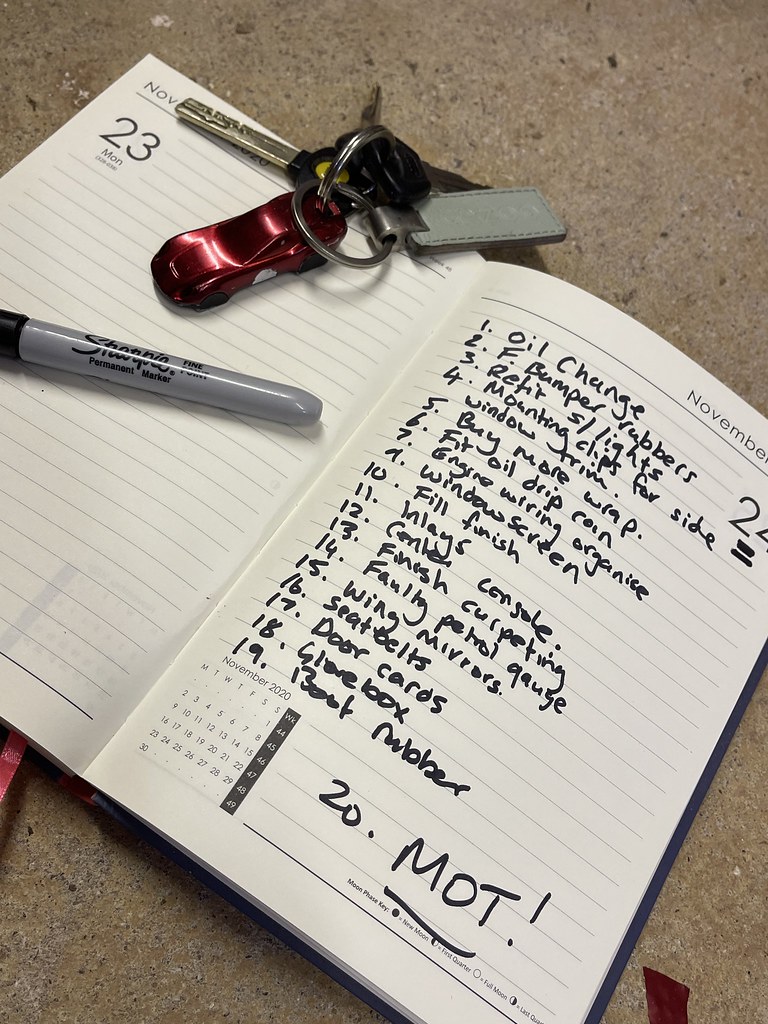 Nov
23
Mon
2020
Sharpie
FINE POINT
Permanent Marker
November
24
1. Oil Change
2. F Bumper rubbers
3. Refit s//lights
4. Mounting clips for side
5. window trim.
6. Buy more wrap.
7. Fit oil drip can
9. Engine wiring organise
10. Windowscreen
11. Fill finish
12. Inlays
13. console.
14. Finish carpeting
15. Faulty petrol gauge
16. Wing Mirrors.
17. Seatbelts
18. Door cards
19. Glovebox
Boot rubber
20. MOT!
November 2020
M T W T F S S Wk
1 44
2 3 4 5 6 7 8 45
9 10 11 12 13 14 15 46
16 17 18 19 20 21 22 47
23 24 25 26 27 28 29 48
30 49
Moon Phase Key: = New Moon = First Quarter = Full Moon = Last